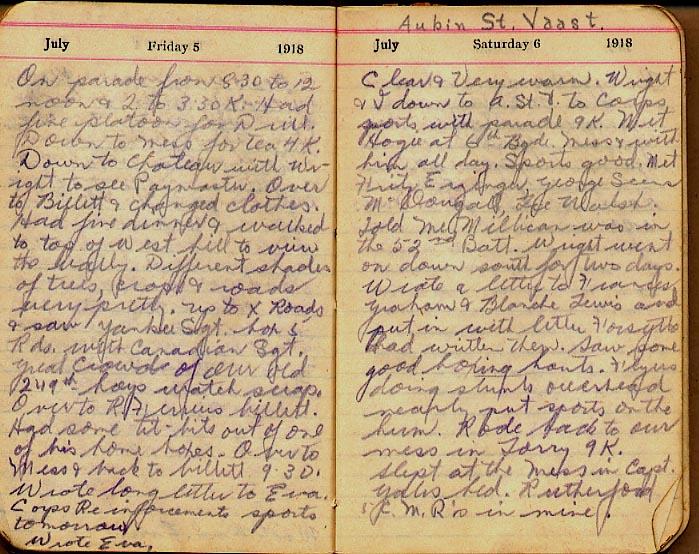 July Friday 5 1918
On parade from 8.30 to 12
noon & 2 to 3.30 K. Had
fine platoon for Drill.
Down to mess for tea 4 K.
Down to Chateau with Wr-
ight to see Paymaster. Over
to Billett & changed clothes.
Had fine dinner & walked
to top of West hill to view
the vally. Different shades
of trees, crops & roads
very pretty. up to X Roads
& saw Yankee Sgt. box 5
Rds. with Canadian Sgt.
Great Crowd of our old
249th boys watch scrap.
Over to R. billett.
Had some tit-bits out of one
of his home boxes. Over to
Mess & back to billett 9.30.
Wrote long letter to Eva.
Corps Reinforcements sports
tomorrow
Wrote Eva.
Aubin St. Vaast.
July Saturday 6 1918
Clear & Very warm. Wright
& I down to A. St. V. to Corps
sports with parade 9 K. Met
Hogue at 6th Bgde. Mess & with
him all day. Sports good. Met
Fritz George
McDougall, Joe Walsh.
Told me Millican was in
the 52nd Batt. Wright went
on down south for two days.
Wrote a letter to Frances
Graham & Blanche Lewis and
put in with letter Forsythe
had written them. Saw some
good boxing bouts. Flyers
doing stunts overhead
nearly put sports on the
bum. Rode back to our
mess in Lorry 9 K.
Slept at the Mess in Capt.
bed. Rutherford
C.M.R's in mine.